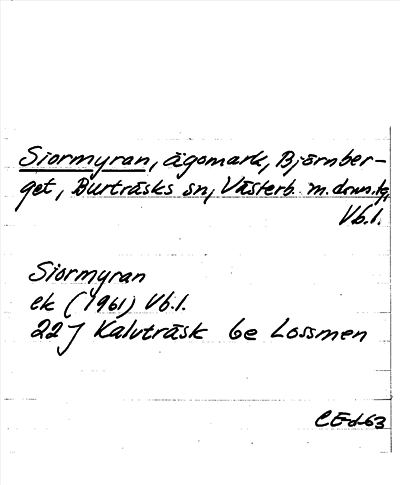 Siormyran, ägomark, Björnber-
get, Burträsks sn, Västerb. m. doms.lg,
Vb.l.
Siormyran
ek (1961) Vb.l.
22J Kalvträsk 6e Lossmen
CEd-63